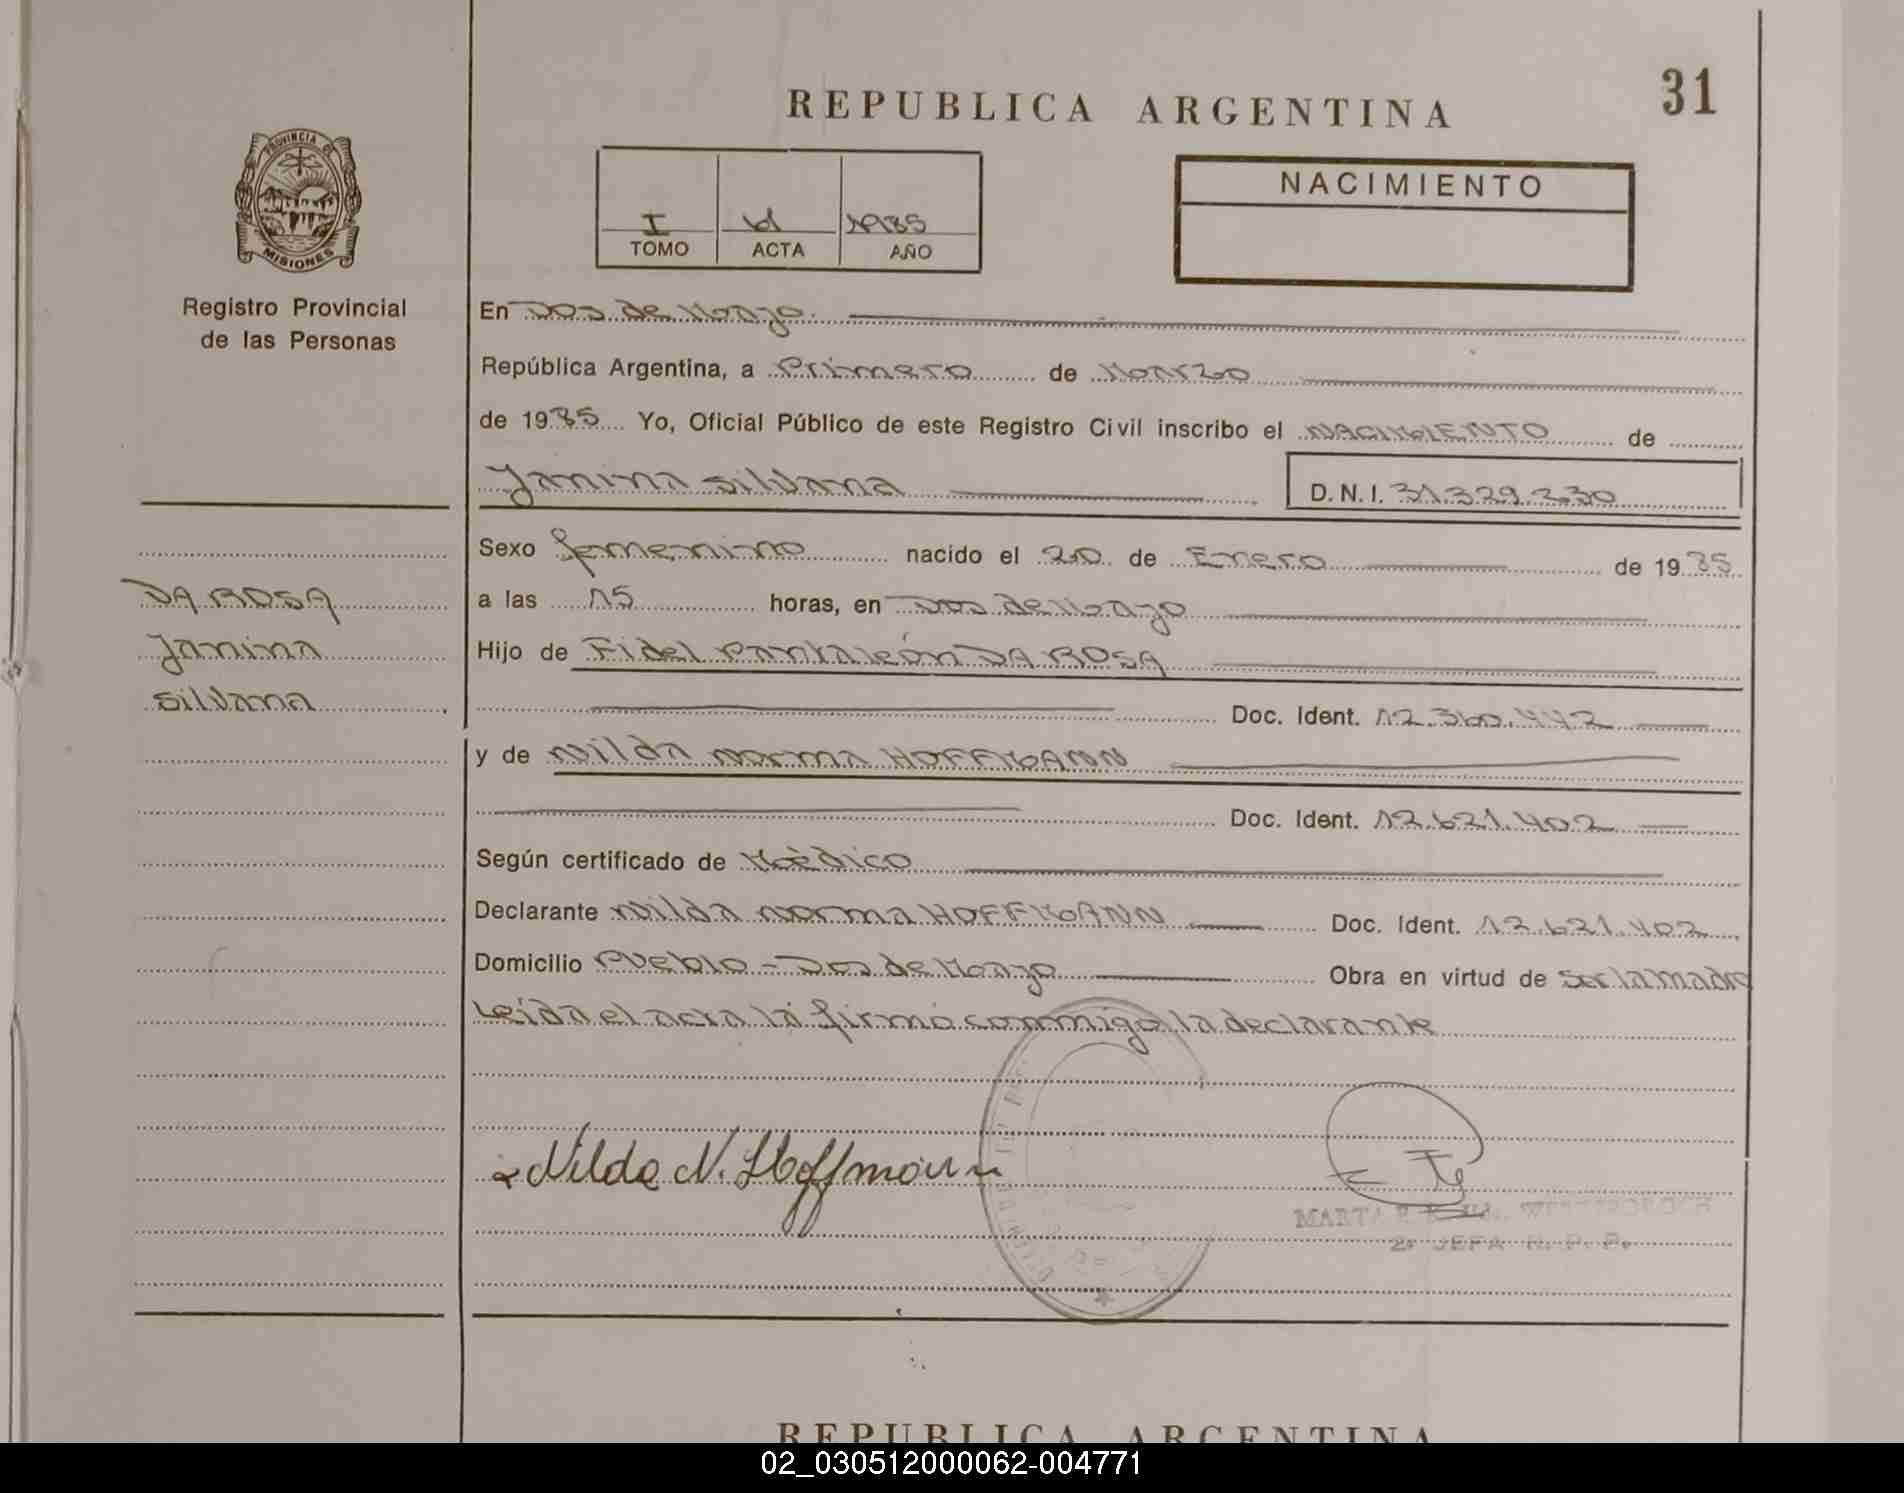 REPUBLICA ARGENTINA
31
PROVINCIA DE
MISIONES
Registro Provincial
de las Personas
I 1985
TOMO ACTA AÑO
NACIMIENTO
En Dos de Mayo
República Argentina, a Primero de Marzo
de 1985 Yo, Oficial Público de este Registro Civil inscribo el NACIMIENTO de
Janina Silvana D.N.I. 31.329.230
Sexo femenino nacido el 20 de Enero de 1985
a las 15 horas, en Dos de Mayo
Hijo de Fidel Pantaleón DA ROSA
Doc. Ident. 12.360.442
y de Nilda Norma HOFFMANN
Doc. Ident. 12.621.402
Según certificado de Médico
Declarante Nilda Norma HOFFMANN Doc. Ident. 12.621.402
Domicilio Pueblo - Dos de Mayo Obra en virtud de ser la madre
Leida el acta la firmó conmigo la declarante
DA ROSA
Janina
Silvana
Nilda N. Hoffmann
MARTA
2º JEFA R. P. P.
REPUBLICA ARGENTINA
02_030512000062-004771